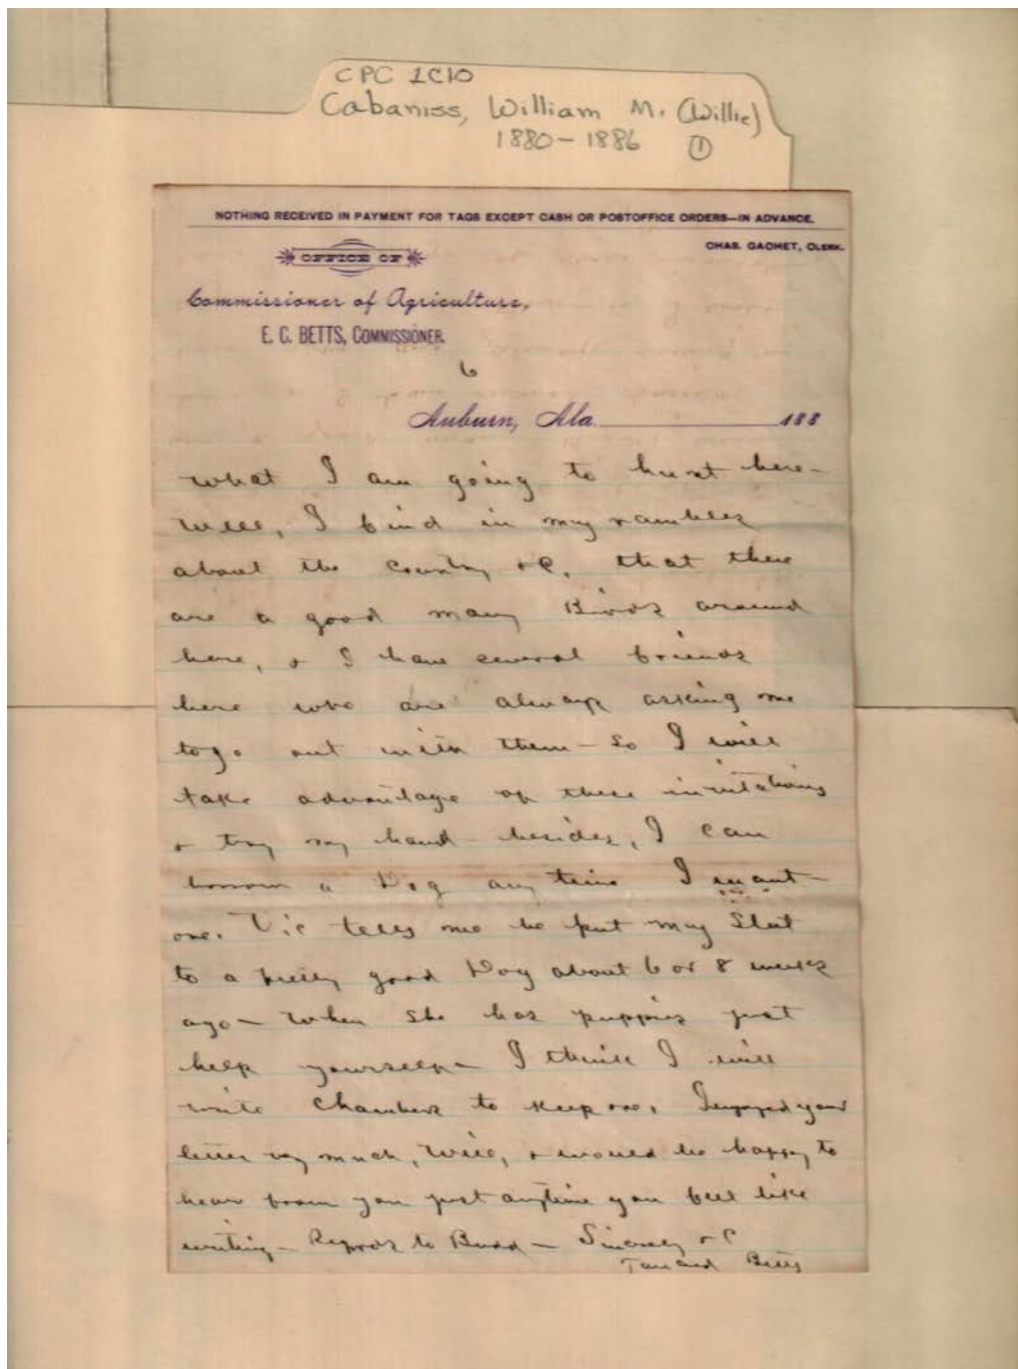 CPC 1C10
Cabaniss, William M. (Willie)
1880-1886 ①
NOTHING RECEIVED IN PAYMENT FOR TAGS EXCEPT CASH OR POSTOFFICE ORDERS—IN ADVANCE.
CHAS. GACHET, CLERK.
OFFICE OF
Commissioner of Agriculture,
E. C. BETTS, COMMISSIONER.
6
Auburn, Ala. 188
what I am going to hunt here—
Well, I find in my rambles
about the country &c. that there
are a good many Birds around
here, & I have several friends
here who are always asking me
to go out with them — So I will
take advantage of these invitations
& try my hand — besides, I can
borrow a Dog any time I want
one. Vic tells me he put my Slut
to a pretty good Dog about 6 or 8 weeks
ago — When she has puppies just
help yourself — I think I will
write Chambers to keep one. I enjoyed your
letter very much, Will, & would be happy to
hear from you just anytime you feel like
writing — Regards to Budd — Sincerely &c
Tancred Betts